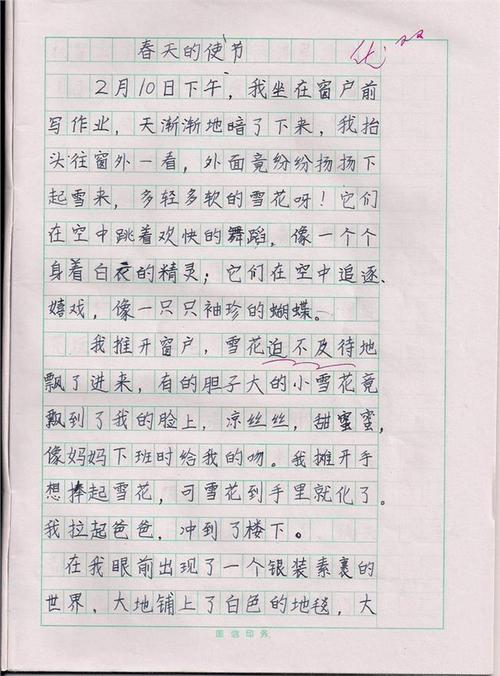 春天的使节
优
2月10日下午，我坐在窗户前
写作业，天渐渐地暗了下来，我抬
头往窗外一看，外面竟纷纷扬扬下
起雪来，多轻多软的雪花呀！它们
在空中跳着欢快的舞蹈，像一个个
身着白衣的精灵；它们在空中追逐、
嬉戏，像一只只袖珍的蝴蝶。
我推开窗户，雪花迫不及待地
飘了进来，有的胆子大的小雪花竟
飘到了我的脸上，凉丝丝，甜蜜蜜，
像妈妈下班时给我的吻。我摊开手
想捧起雪花，可雪花到手里就化了。
我拉起爸爸，冲到了楼下。
在我眼前出现了一个银装素裹的
世界，大地铺上了白色的地毯，大
国信印务